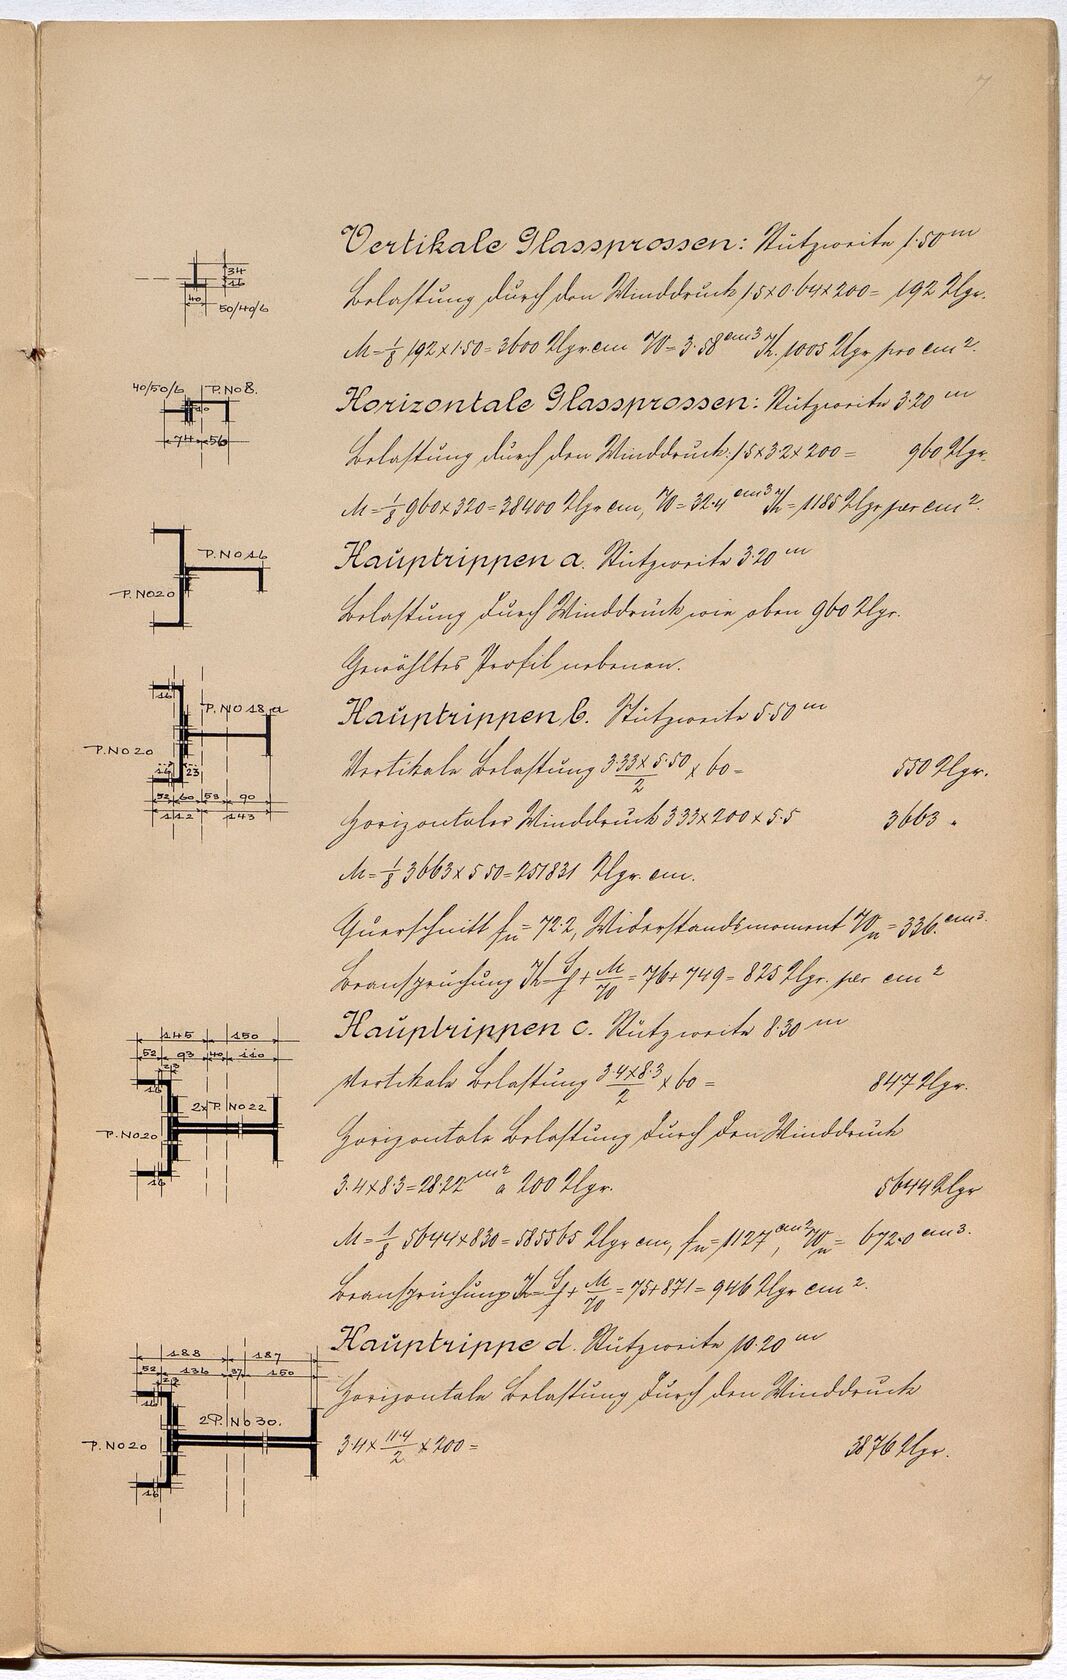 7
Vertikale Glassprossen: Stützweite 1·50 m
Belastung durch den Winddruck 1·5×0·64×200= 192 Klgr.
M=1/8 192×1·50=3600 Klgr.cm W=3·58 cm3 K. 1005 Klgr pro cm2.
34
16
40
50/40/6
Horizontale Glassprossen: Stützweite 3·20 m
40/50/6 P.No8.
Belastung durch den Winddruck: 1·5×3·2×200= 960 Klgr.
74 56
M=1/8 960×320=38400 Klgr cm, W=32·4 cm3 K=1185 Klgr per cm2.
Hauptrippen a. Stützweite 3·20 m
P.No16
P.No20
Belastung durch Winddruck wie oben 960 Klgr.
Gewähltes Profil nebenan.
Hauptrippen b. Stützweite 5·50 m
16
P.No 18.a
P.No20
16 23
Vertikale Belastung 3·33×5·50/2 × 60= 550 Klgr.
52 60 53 90
112 143
Horizontaler Winddruck 3·33×200×5·5 3663 "
M=1/8 3663×5·50=251831 Klgr. cm.
Querschnitt fn=72·2, Widerstandsmoment Wn=336. cm3.
Beanspruchung K=S/f+M/W=76+749=825 Klgr. per cm2
Hauptrippen c. Stützweite 8·30 m
145 150
52 93 40 110
23
16
2×P.No22
P.No20
16
Vertikale Belastung 3·4×8·3/2 × 60= 847 Klgr.
Horizontale Belastung durch den Winddruck
3·4×8·3=28·22 m2 a 200 Klgr. 5644 Klgr
M=1/8 5644×830=585565 Klgr cm, fn=112·7 cm2, Wn= 672·0 cm3.
Beanspruchung K=S/f+M/W=75+871=946 Klgr cm2.
Hauptrippe d. Stützweite 10·20 m
188 187
52 136 37 150
23
16
2P.No30.
P.No20
16
Horizontale Belastung durch den Winddruck
3·4×11·4/2×200= 3876 Klgr.